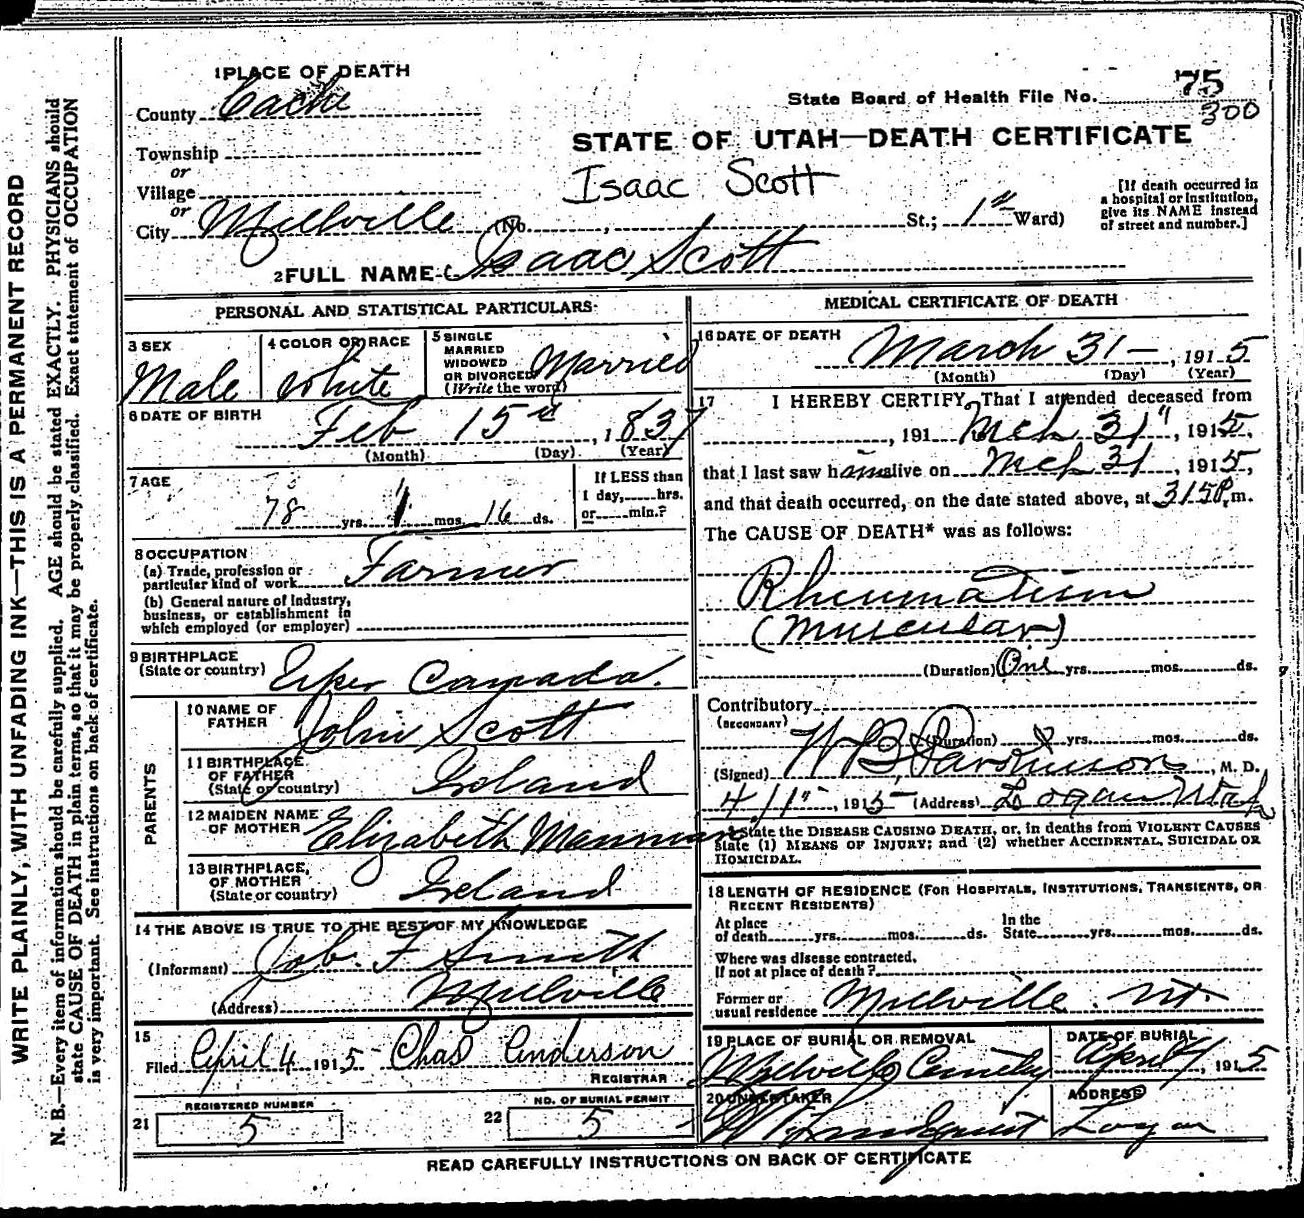 WRITE PLAINLY, WITH UNFADING INK—THIS IS A PERMANENT RECORD
N. B.—Every item of information should be carefully supplied. AGE should be stated EXACTLY. PHYSICIANS should
state CAUSE OF DEATH in plain terms, so that it may be properly classified. Exact statement of OCCUPATION
is very important. See instructions on back of certificate.
1 PLACE OF DEATH
County Cache
State Board of Health File No. 75
300
STATE OF UTAH—DEATH CERTIFICATE
Township
or
Village
or
City Millville (No. , St.; 1st Ward)
Isaac Scott
[If death occurred in
a hospital or institution,
give its NAME instead
of street and number.]
2 FULL NAME Isaac Scott
PERSONAL AND STATISTICAL PARTICULARS
3 SEX
Male
4 COLOR OR RACE
White
5 SINGLE
MARRIED
WIDOWED
OR DIVORCED
(Write the word)
Married
6 DATE OF BIRTH
Feb 15th, 1837
(Month) (Day) (Year)
7 AGE
78 yrs. 1 mos. 16 ds.
If LESS than
1 day,......hrs.
or......min.?
8 OCCUPATION
(a) Trade, profession or
particular kind of work Farmer
(b) General nature of industry,
business, or establishment in
which employed (or employer)
9 BIRTHPLACE
(State or country) Uper Canada.
PARENTS
10 NAME OF
FATHER John Scott
11 BIRTHPLACE
OF FATHER
(State or country) Ireland
12 MAIDEN NAME
OF MOTHER Elizabeth
13 BIRTHPLACE,
OF MOTHER
(State or country) Ireland
14 THE ABOVE IS TRUE TO THE BEST OF MY KNOWLEDGE
(Informant) Job. F Smith
(Address) Millville
15
Filed April 4 1915 Chas Anderson
REGISTRAR
21 REGISTERED NUMBER
5
22 NO. OF BURIAL PERMIT
5
MEDICAL CERTIFICATE OF DEATH
16 DATE OF DEATH
March 31—, 1915
(Month) (Day) (Year)
17 I HEREBY CERTIFY, That I attended deceased from
, 191 Mch 31", 1915,
that I last saw him alive on Mch 31, 1915,
and that death occurred, on the date stated above, at 3 15 P.m.
The CAUSE OF DEATH* was as follows:
Rheumatism
(Muscular)
(Duration) One yrs. mos. ds.
Contributory
(SECONDARY)
(Duration) yrs. mos. ds.
(Signed) W B Parkinson, M. D.
4/1st, 1915 (Address) Logan Utah
*State the DISEASE CAUSING DEATH, or, in deaths from VIOLENT CAUSES
state (1) MEANS OF INJURY; and (2) whether ACCIDENTAL, SUICIDAL OR
HOMICIDAL.
18 LENGTH OF RESIDENCE (FOR HOSPITALS, INSTITUTIONS, TRANSIENTS, OR
RECENT RESIDENTS)
At place
of death yrs. mos. ds.
In the
State yrs. mos. ds.
Where was disease contracted,
if not at place of death?
Former or
usual residence Millville. Ut.
19 PLACE OF BURIAL OR REMOVAL
Millville Cemetery
DATE OF BURIAL
April, 1915
20 UNDERTAKER
Lindquist
ADDRESS
Logan
READ CAREFULLY INSTRUCTIONS ON BACK OF CERTIFICATE